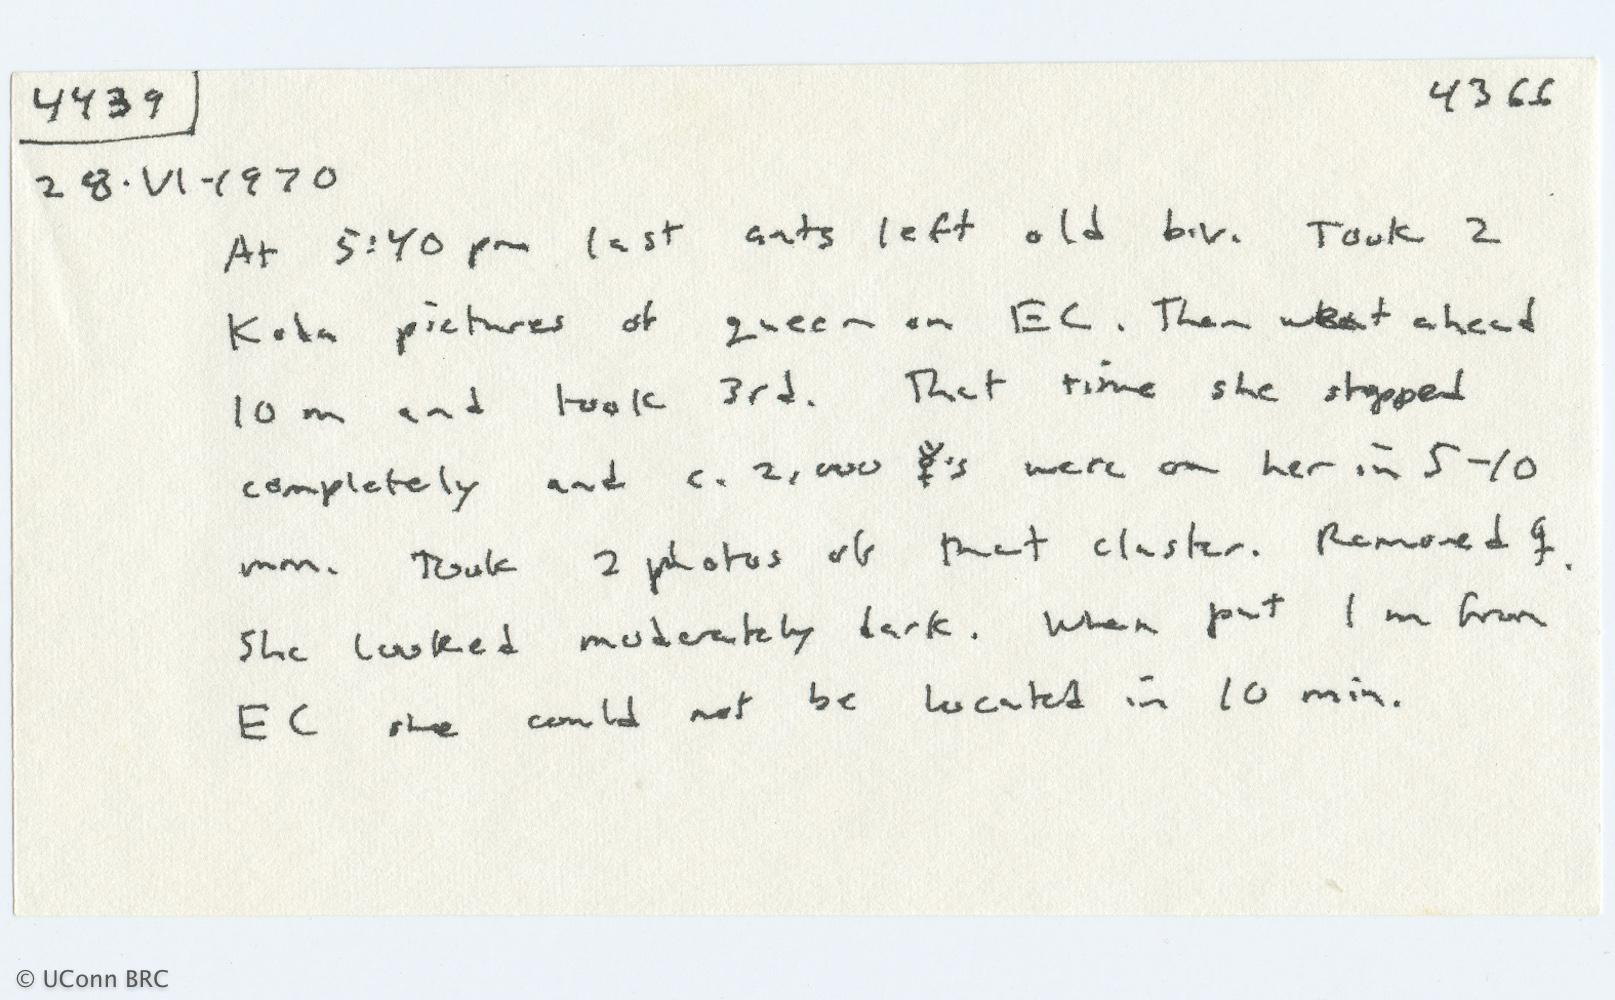 4439 4366
28.VI-1970
At 5:40 pm last ants left old biv. Took 2
Koda pictures of queen on EC. Then went ahead
10 m and took 3rd. That time she stopped
completely and c. 2,000 ☿'s were on her in 5-10
min. Took 2 photos of that cluster. Removed ♀.
She looked moderately dark. When put 1 m from
EC she could not be located in 10 min.
© UConn BRC